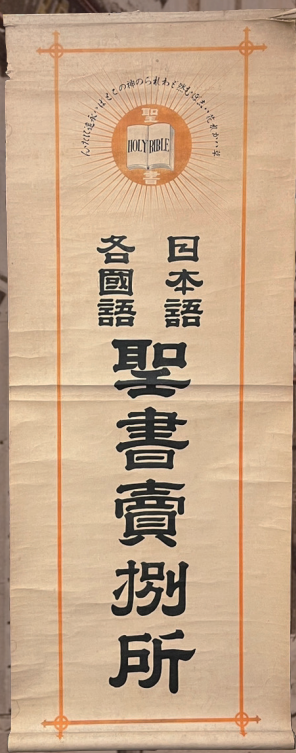 草 花 然 われらの神のことばは永遠にたたん
聖
HOLY BIBLE
書
日本語
各國語
聖書賣捌所